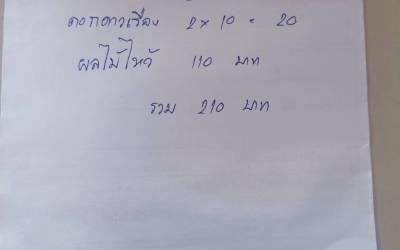 ดอกดาวเรือง 2 x 10 = 20
ผลไม้ไหว้ 110 บาท
รวม 210 บาท